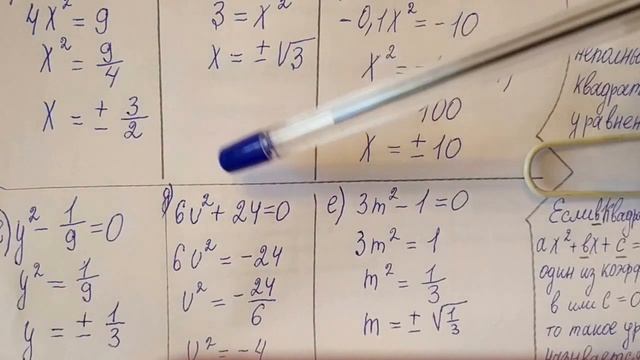 4x² = 9
x² = 9/4
x = ± 3/2
3 = x²
x = ±√3
-0,1x² = -10
x² =
100
x = ± 10
квадрат
уравнен
y² - 1/9 = 0
y² = 1/9
y = ± 1/3
д)
6v² + 24 = 0
6v² = -24
v² = -24/6
v² = -4
е) 3m² - 1 = 0
3m² = 1
m² = 1/3
m = ± √1/3
Если квадра
ax² + bx + c =
один из коэф
в или с = 0
то такое ур